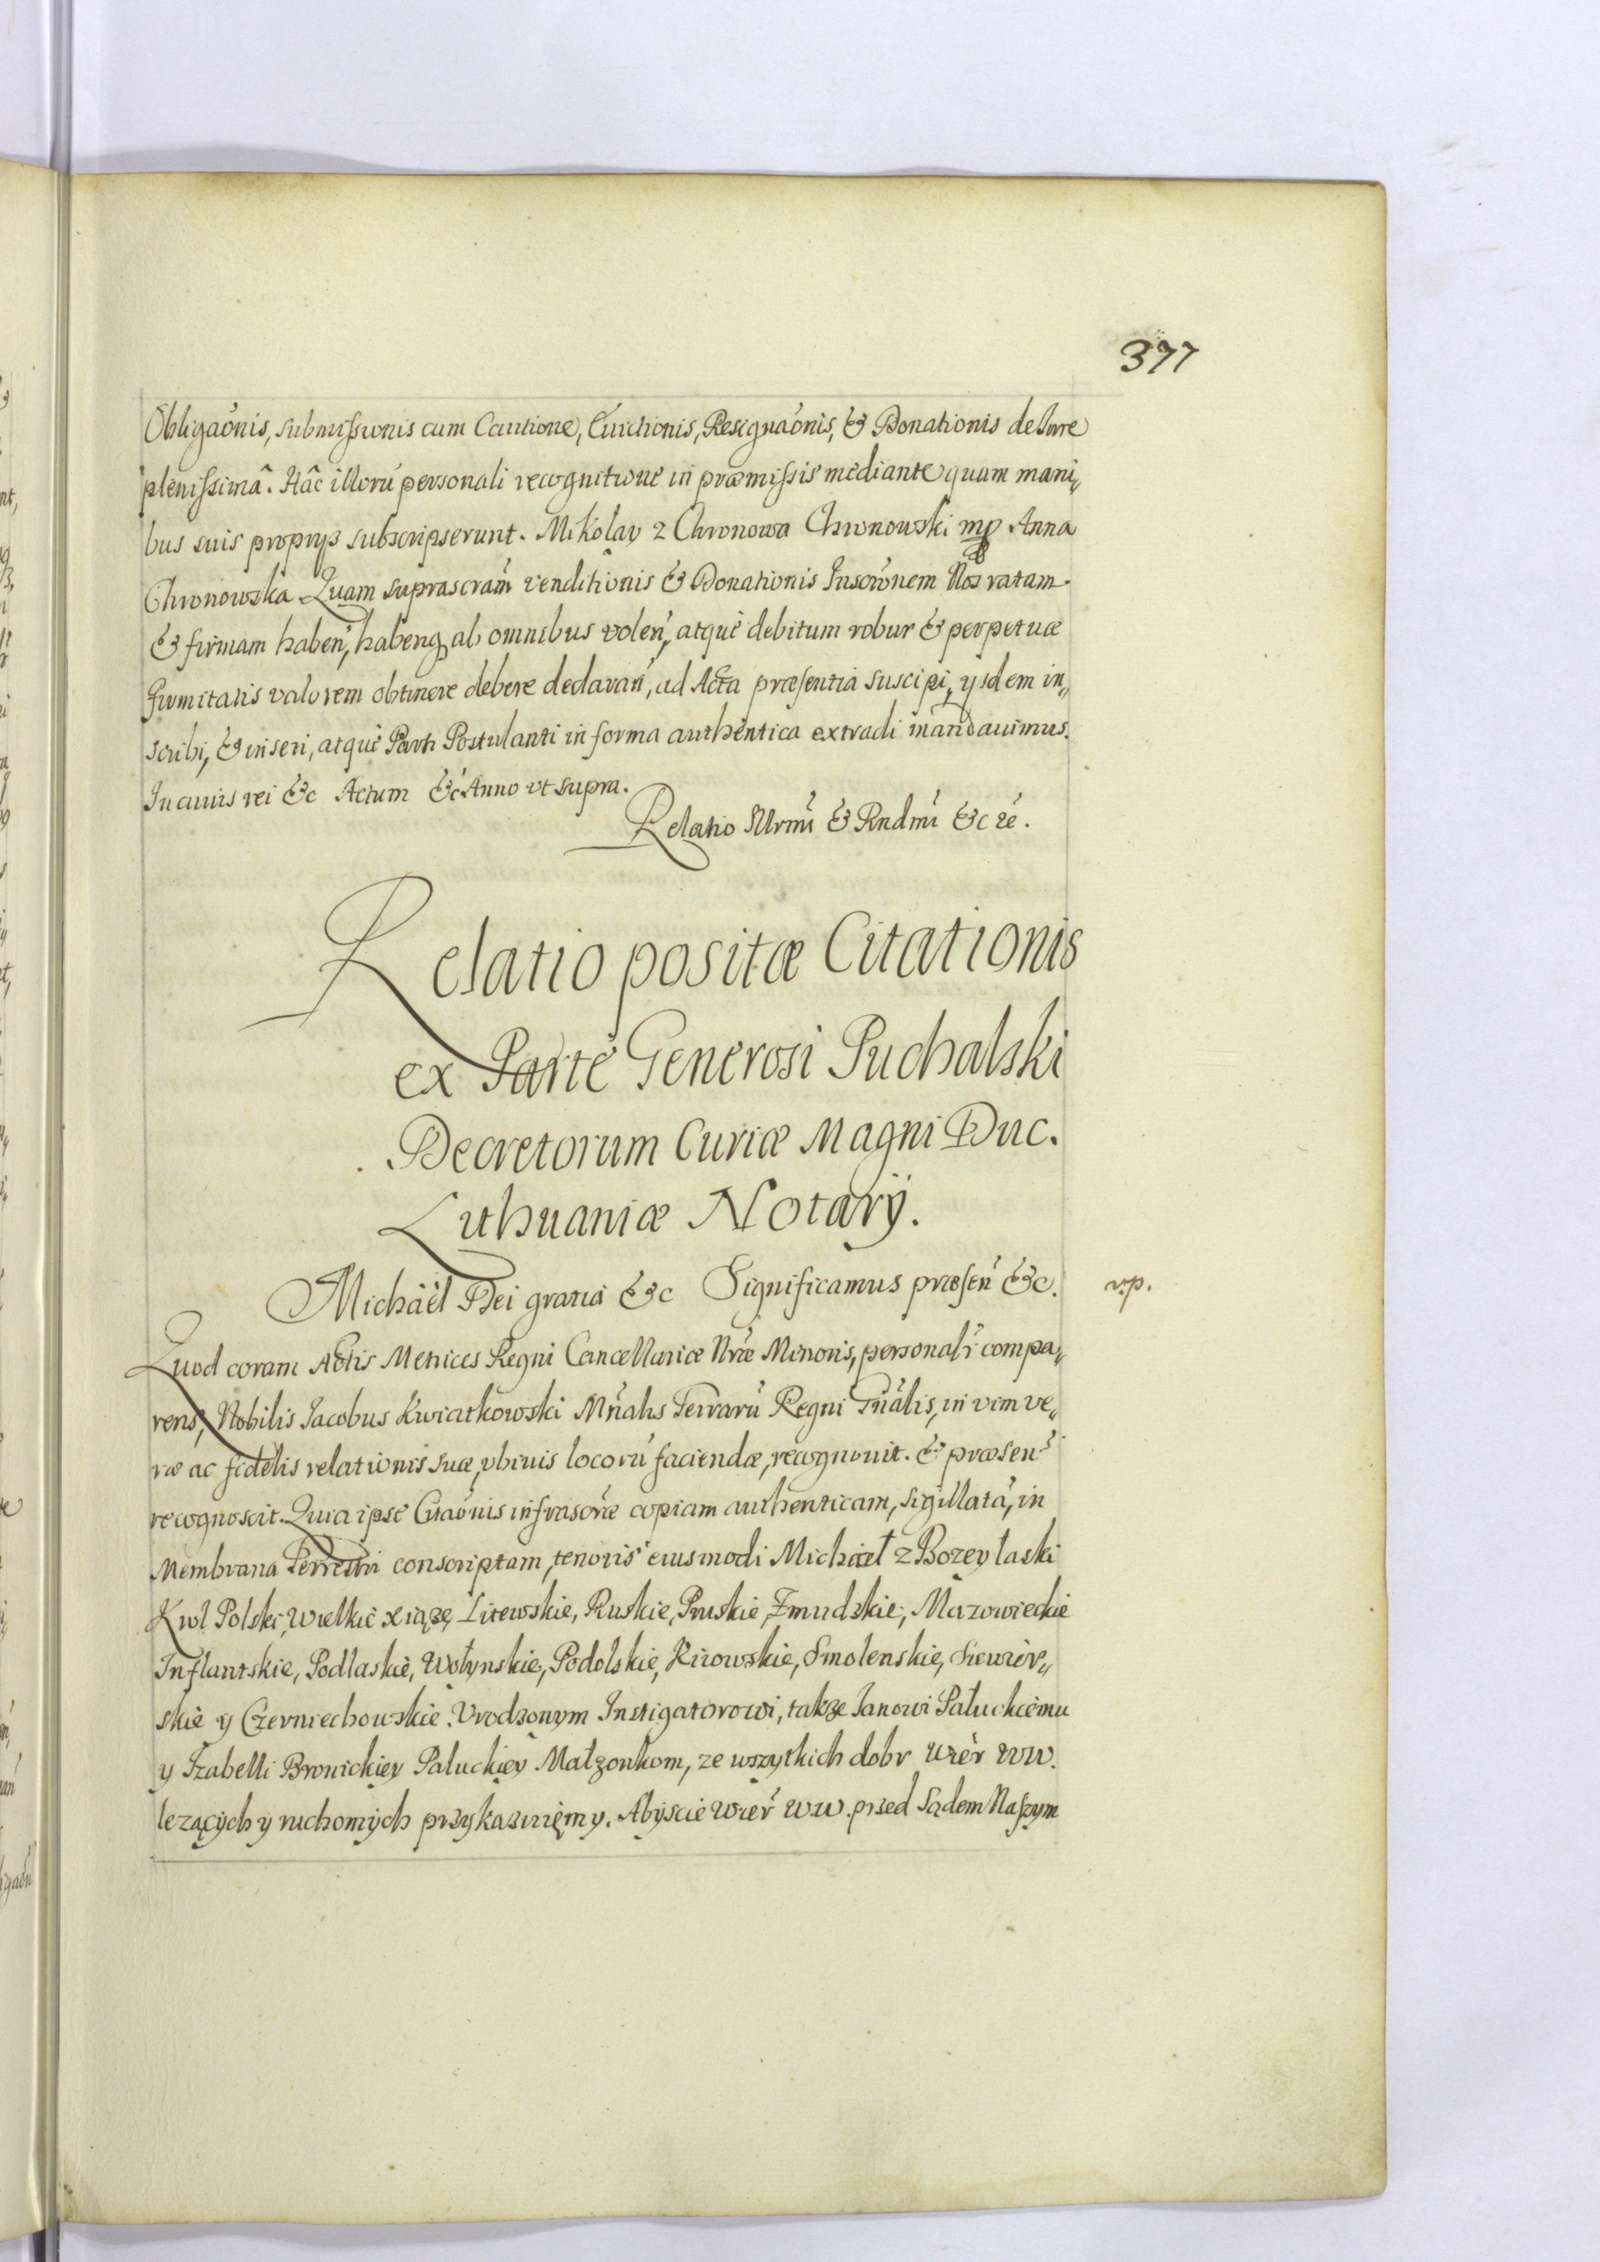 377
Obligaónis, submissionis cum Cautione, Euictionis, Resignaónis, & Donationis de Iure
plenissimâ. Hâc illorú personali recognitione in præmissis mediante quam mani„
bus suis proprys subscripserunt. Mikołay z Chronowa Chronowski mp Anna
Chronowska Quam suprascrám venditionis & Donationis Inscrónem Nos ratam
& firmam habeń, habenq ab omnibus voleń, atque debitum robur & perpetuæ
firmitatis valorem obtinere debere declarań, ad Acta præsentia suscipi, ysdem in„
scribi, & inseri, atque Parti Postulanti in forma authentica extradi mandauimus.
In cuius rei &c Actum &c Anno vt supra.
Relatio Illrmi & Rndmi &c ré.
Relatio positæ Citationis
ex Parte Generosi Puchalski
Decretorum Curiæ Magni Duc.
Lithuaniæ Notarÿ.
Michaël Dei gratia &c Significamus præseń &c. vp.
Quod coram Actis Metrices Regni Cancellariæ Nræ Minoris, personalr compa„
rens, Nobilis Iacobus Kwiatkowski Mńalis Terrarú Regni Gńalis, in vim ve„
ræ ac fidelis relationis suæ, vbiuis locorú faciendæ, recognouit. & præsen
recognoscit. Quia ipse Citaónis infrascræ copiam authenticam, sigillatá, in
Membrana Terrestri conscriptam, tenoris eiusmodi Michał z Bozey łaski
Krol Polski, Wielkie xiąze Litewskie, Ruskie, Pruskie, Zmudzkie, Mazowieckie
Inflantskie, Podlaskie, Wołynskie, Podolskie, Kiiowskie, Smolenskie, Siewier„
skie y Czerniechowskie. Vrodzonym Instigatorowi, takze Ianowi Pałuckiemu
y Izabelli Bronickiey Pałuckiey Małzonkom, ze wszytkich dobr Wier WW.
lezących y ruchomych przykazuięmy. Abyscie Wier WW. przed Sądem Naszym